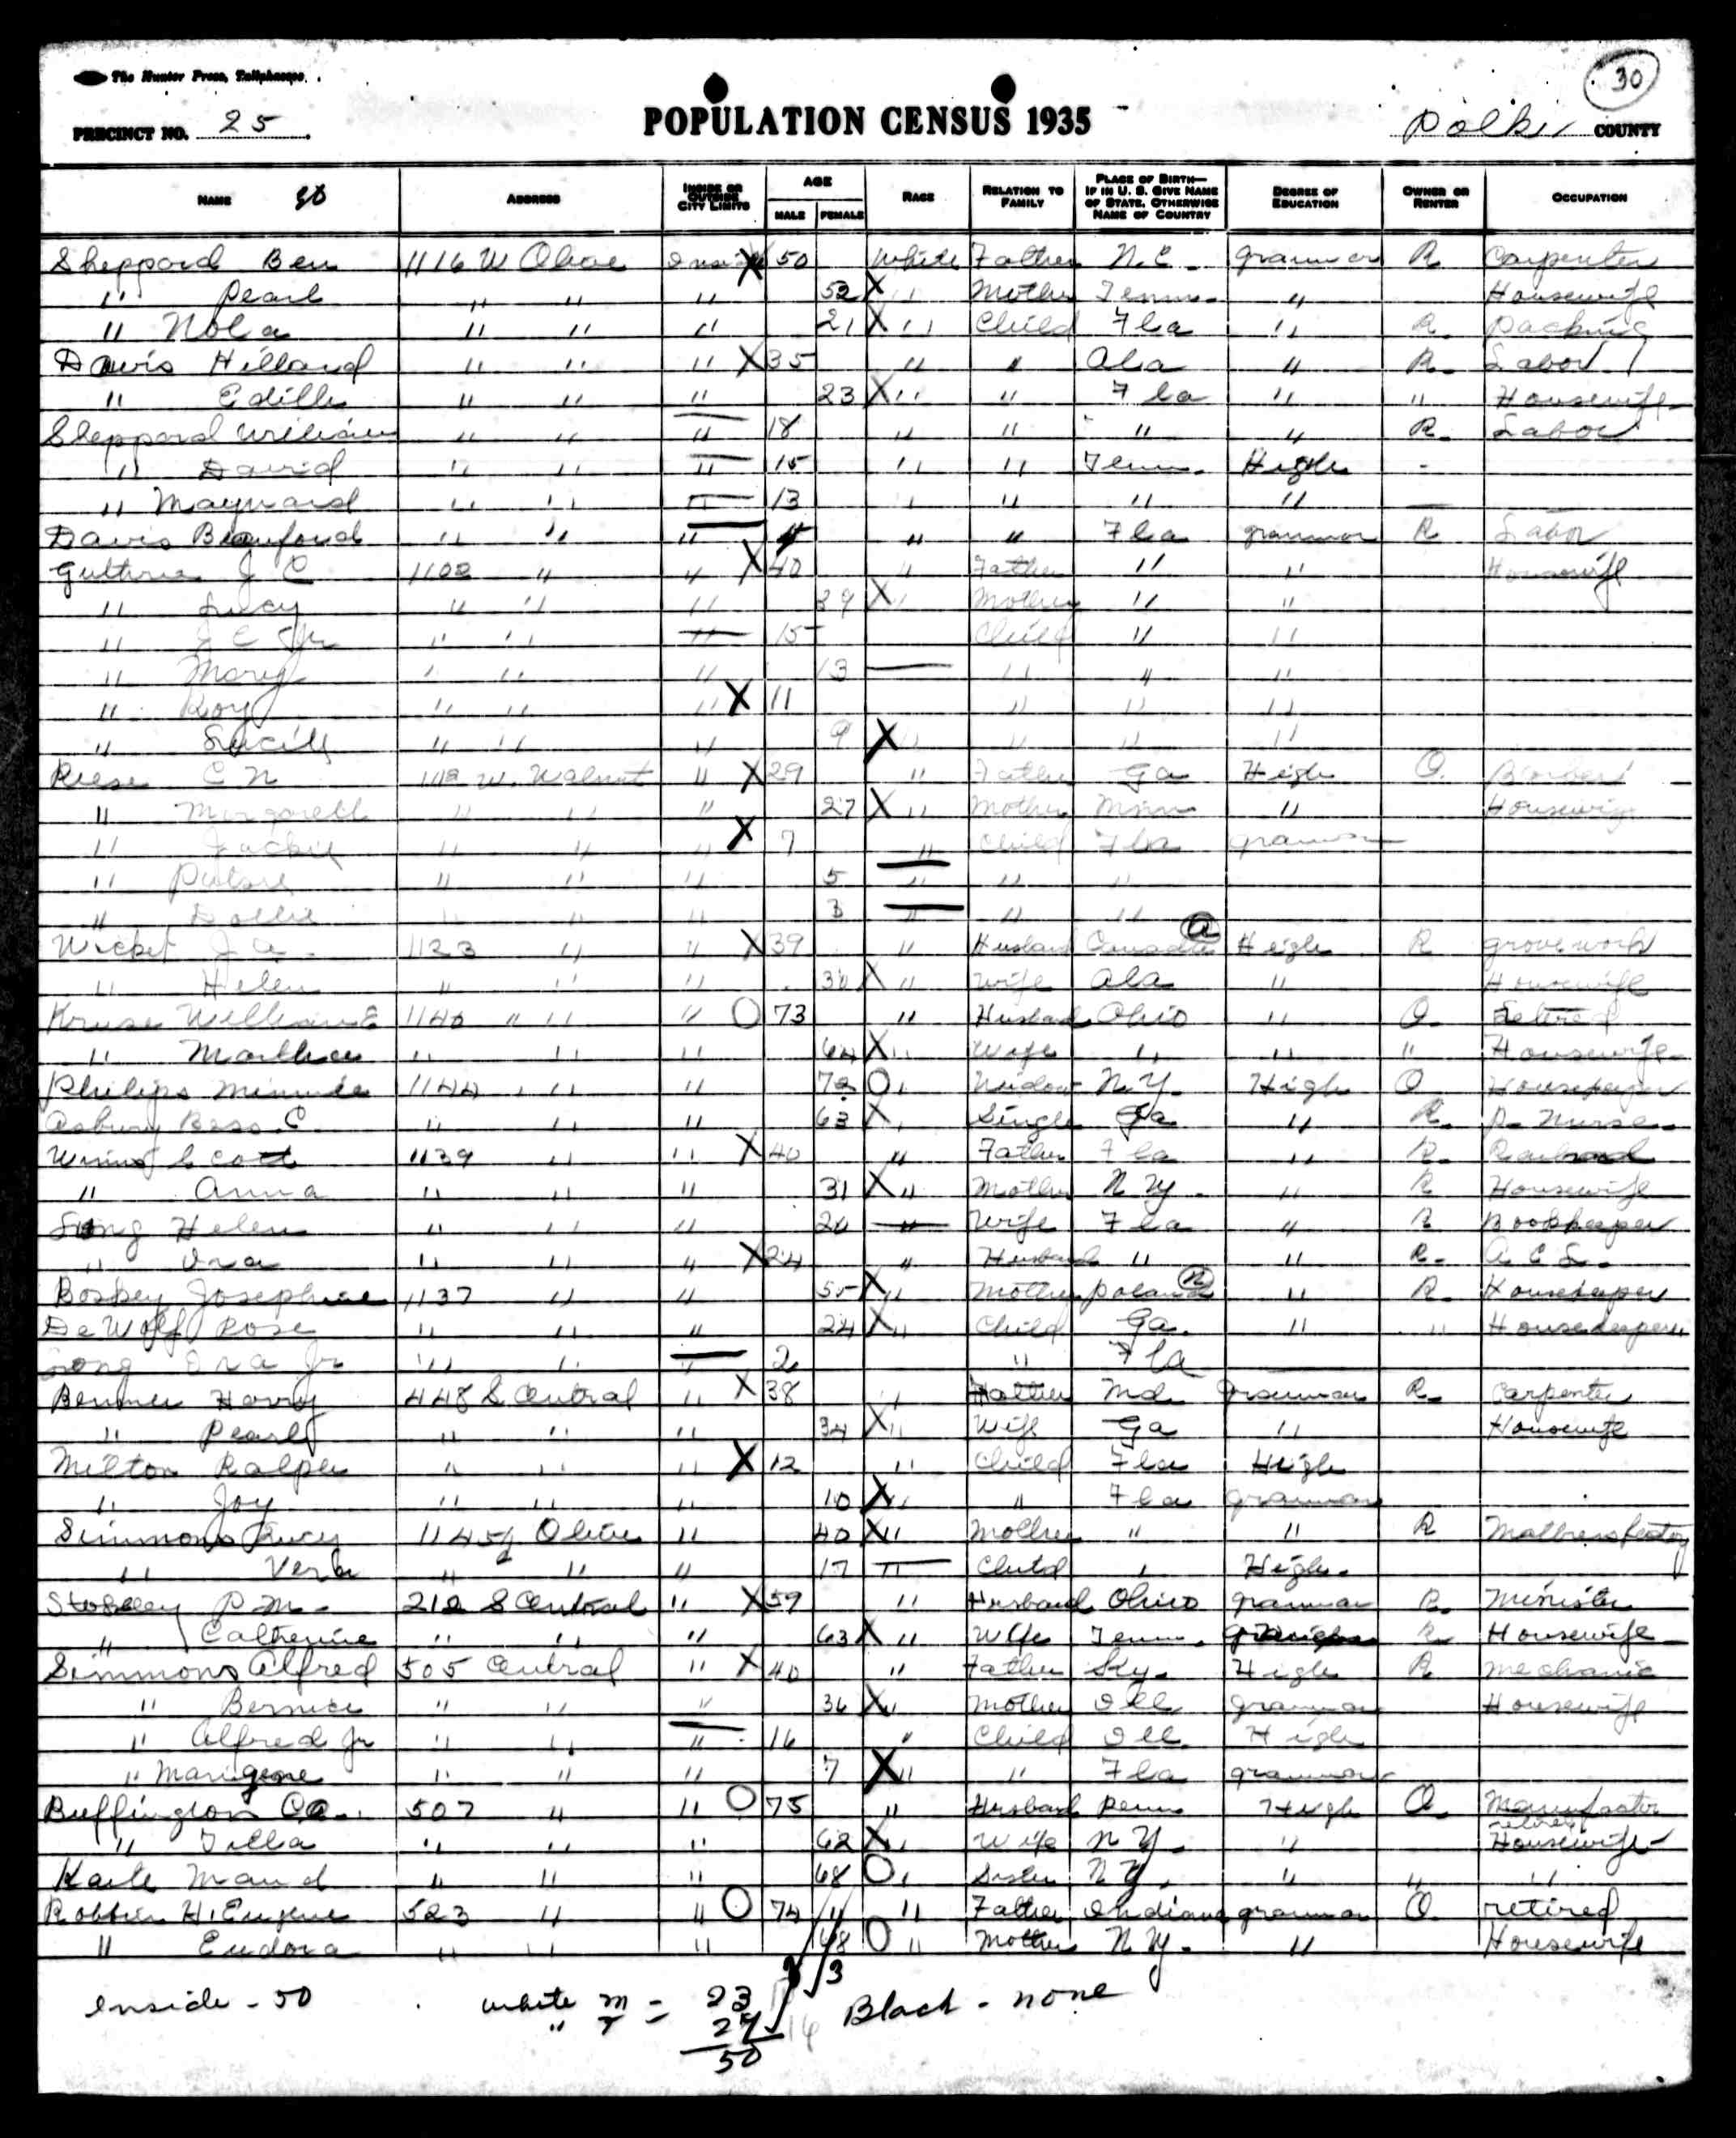 The Hunter Press, Tallahassee.
30
PRECINCT NO. 25 . POPULATION CENSUS 1935 Polk COUNTY
NAME 50 ADDRESS INSIDE OR OUTSIDE CITY LIMITS AGE MALE FEMALE RACE RELATION TO FAMILY PLACE OF BIRTH— IF IN U. S. GIVE NAME OF STATE, OTHERWISE NAME OF COUNTRY DEGREE OF EDUCATION OWNER OR RENTER OCCUPATION
Sheppard Ben 1116 W Olive Inside X 50 White Father N.C. grammar R Carpenter
" Pearl " " " 52 X " Mother Tenn. " Housewife
" Nola " " " 21 X " Child Fla " R. Packing
Davis Hillard " " " X 35 " " Ala " R. Labor
" Edith " " " 23 X " " Fla " " Housewife
Sheppard William " " " 18 " " " " R. Labor
" David " " " 15 " " Tenn. High -
" Maynard " " " 13 " " " " —
Davis Buford " " " " " Fla grammar R Labor
Guthrie J C 1108 " " X 40 " Father " " Housewife
" Lucy " " " 39 X " Mother " "
" J C Jr " " " 15 Child " "
" Mary " " " 13 — " " "
" Roy " " " X 11 " " "
" Lucill " " " 9 X " " " "
Reese C N 1112 W. Walnut " X 29 " Father Ga High O
" Margarett " " " 27 X " Mother Minn " Housewife
" Jackie " " " X 7 " Child Fla grammar
" " " " 5 " " "
" Dollie " " " 3 " " "
Wicket J a. 1123 " " X 39 " Husband Canada a High R grove work
" Helen " " " 30 X " Wife Ala " Housewife
Kruse William E 1140 " " " O 73 " Husband Ohio " O. Retired
" Marthea " " " 64 X " Wife " " " Housewife
Philips Minnie 1144 " " " 72 O " Widow N.Y. High O Housekeeper
Asbury Bess C. " " " 63 X " Single Ga " R. P. Nurse.
Wining Scott 1139 " " X 40 " Father Fla " R. Railroad
" Anna " " " 31 X " Mother N Y. " R Housewife
Long Helen " " " 20 " Wife Fla " R Bookkeeper
" Ira " " " X 24 " Husband " " R. A C L.
Boskey Josephine 1137 " " 55 X " Mother Poland n " R. Housekeeper
DeWolf Rose " " " 24 X " Child Ga. " " Housekeeper
Long Ira Jr " " " 2 " Fla —
Benner Harry 448 S. Central " X 38 " Father Md. grammar R. Carpenter
" Pearl " " " 34 X " Wife Ga " Housewife
Milton Ralph " " " X 12 " Child Fla High
" Joy " " " 10 X " " Fla grammar
Simmons Lucy 1145½ Olive " 40 X " Mother " " R Mattress factory
" Verla " " " 17 " Child " High.
P.M. 212 S Central " X 59 " Husband Ohio grammar R. Minister
" Catherine " " " 63 X " Wife Tenn. R Housewife
Simmons Alfred 505 Central " X 40 " Father Ky. High R Mechanic
" Bernice " " " 36 X " Mother Ill grammar Housewife
" Alfred Jr " " " 16 " Child Ill. High
" Marigene " " " 7 X " " Fla grammar
Buffington C.A. 507 " " O 75 " Husband Penn High O. Manufactor retired
" Tilla " " " 62 X " Wife N Y. " Housewife
Karle Maud " " " 68 O " Sister N Y. " " "
Robbins H. Eugene 523 " " O 74 " Father Indiana grammar O retired
" Eudora " " " 68 O " Mother N Y. " Housewife
Inside - 50 white m = 23 Black - none
" F = 27
50